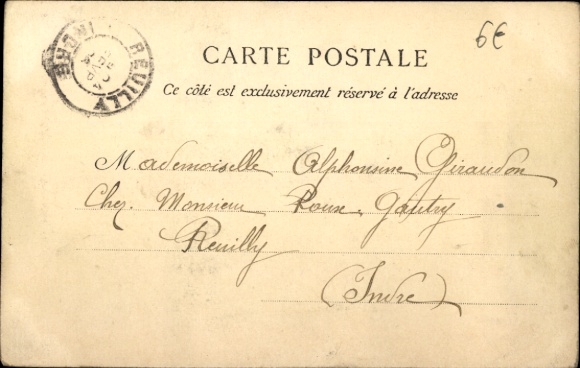 6€
REUILLY
INDRE
CARTE POSTALE
Ce côté est exclusivement réservé à l'adresse
Mademoiselle Alphonsine Giraudon
Chez Monsieur Roux-Gautry
Reuilly
(Indre)